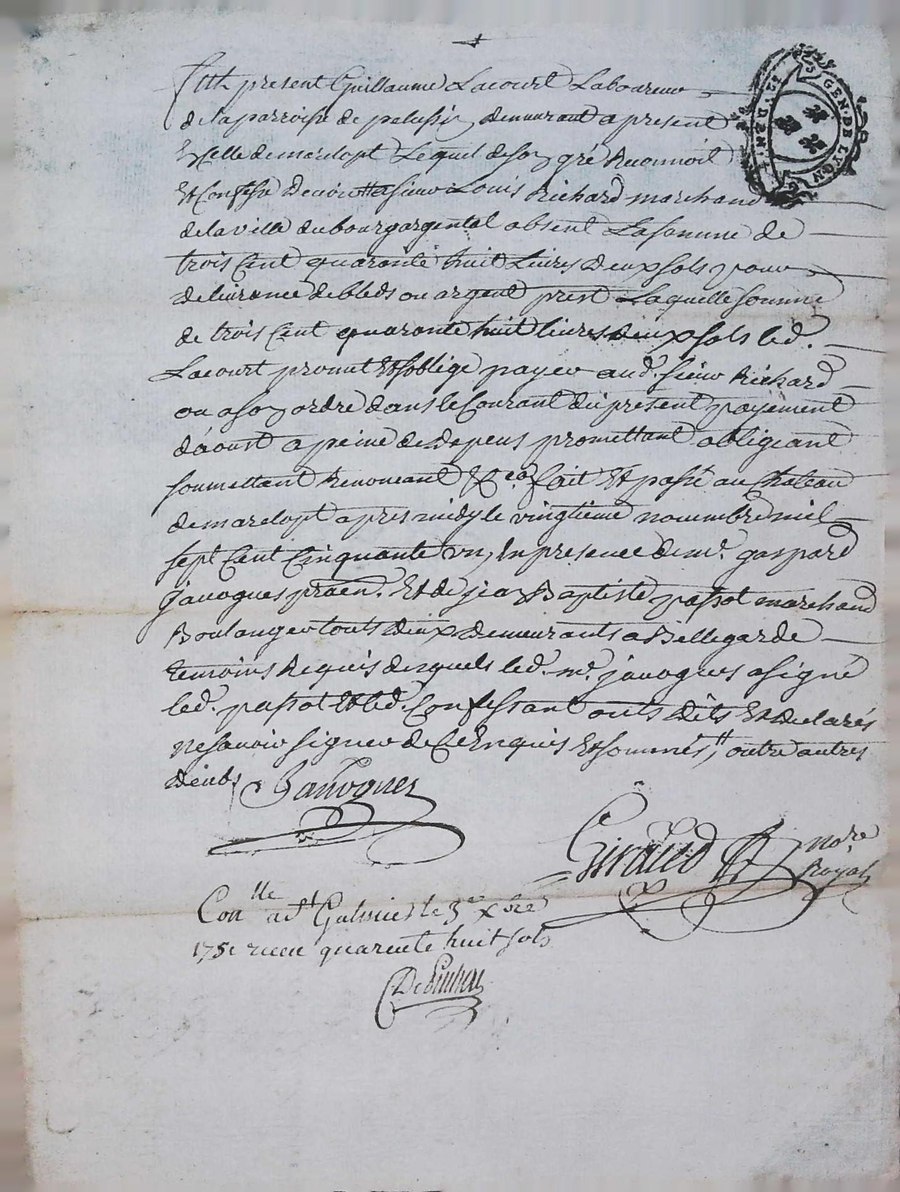 GEN. DE LYON
fut present Guillaume Lacourt Laboureur
de la parroisse de palessy demeurant a present
Et Celle de marclopt Lequel de son gré Reconnoit
Et Confesse devoir a sieur Louis Richard marchand
de la ville du bourgargental absent La somme de
trois Cent quarante huit Livres deux sols pour
delivrance de bleds ou argent prest Laquelle somme
de trois Cent quarante huit livres deux sols led.
Lacourt promet Et s'oblige payer aud. sieur Richard
ou a son ordre dans le Courant du present payement
d'aoust a peine de depens promettant obligeant
soumettant Renonceant &c fait Et passé au Chateau
de marclopt apres midy le vingtieme novembre mil
sept Cent Cinquante un, In presence de mr. gaspard
javogues praen. Et de jean Baptiste passot marchand
Boulanger touts deux demeurants a Bellegarde
temoins Requis desquels led. mr. javogues a signé
led. passot Et led. Confessant onts dits Et declarés
ne savoir signer de Ce Enquis Et sommés, outre autres
deubs
Javogues
Giraud nore Royal
Conlle a st Galmier le 3e xbre
1751 receu quarente huit sols